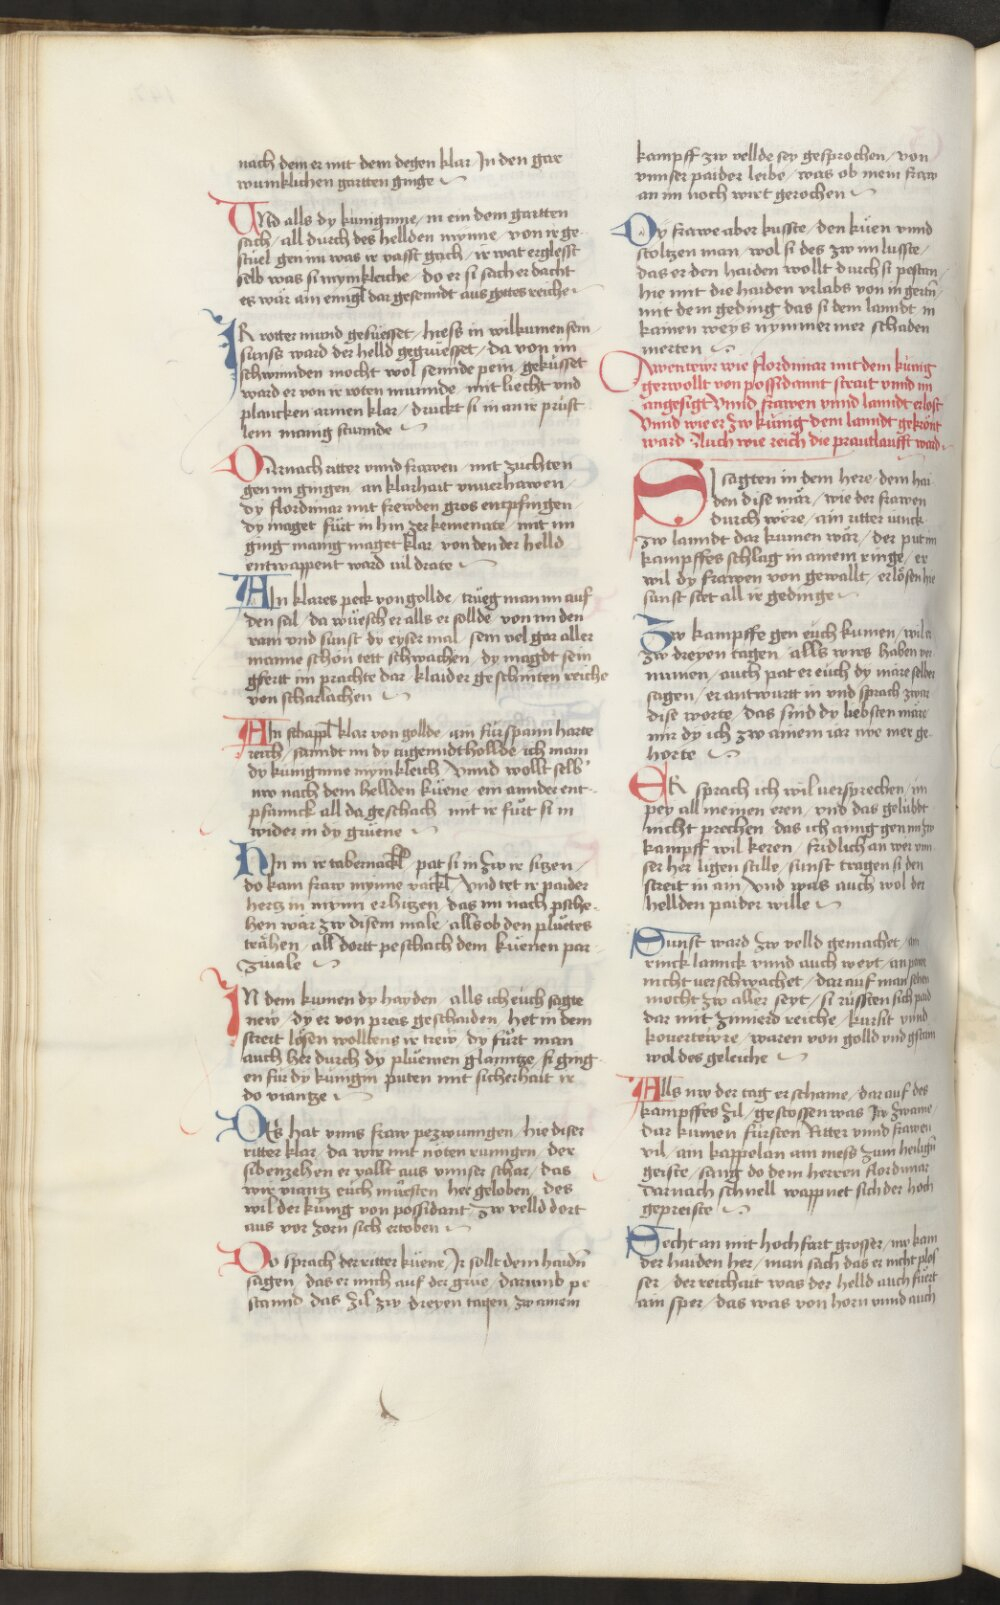 nach dem er mit dem degen klar / In den gar
wunnklichen gartten ginge
Vnd alls dy kuniginne / in ein dem gartten
sach / all durch des hellden mynne / von ir ge-
stuel gen im was ir vasst gach / ir wat erglesst
selb was si mynnkleiche / do er si sach er dacht
es wär ain enngl dar gesenndt aus gottes reiche
IR rotter mund gesüesset / hiess in wilkumen sein
sunss ward der helld gegrüesset / da von im
schwinnden mocht wol sennde pein / gekusset
ward er von ir roten munnde / mit liecht vnd
plancken armen klar / druckt si in an ir prüst
lein manig stunnde
Darnach ritter vnnd frawen / mit zuchten
gen im gingen / an klarhait vnuerhawen
dy flordimar mit frewden gros enpfingen
dy maget fürt in hin zer kemenate / mit im
ging manig maget klar / von den der helld
entwappent ward vil drate
Ain klares peck von gollde / trüeg man im auf
den sal / da wüesch er alls er sollde / von im den
ram vnd sunst dy eyser mal / sein vel gar aller
manne schön tett schwachen / dy magdt sein
gfertt im prachte dar / klaider geschniten reiche
von scharlachen
Ain schappl klar von gollde / ain fürspann harte
reich / sanndt im dy tugenndt hollde / ich main
dy kuniginne mynnkleich / Vnnd wollt selb
nw nach dem hellden küene / ein annder ent-
pfannck all da geschach / mit ir fürt si in
wider in dy grüene
Hin in ir tabernackl / pat si in zw ir sizen /
do kam fraw mynne vackl / Vnd tet ir paider
hertz in mynn erhizen / das im nach psche-
hen wär zw disem male / alls ob den pluetes
trähen / all dortt peschach dem küenen par-
ziuale
IN dem kumen dy hayden / alls ich euch sagte
new / dy er von preis geschaiden / het in dem
streit lösen wolltens ir trew / dy fürt man
auch her durch dy pluemen glanntze / si ging-
en für dy künigin / puten mit sicherhait ir
do viantze
Das hat vnns fraw pezwunngen / hie diser
ritter klar / da wir mit nöten runngen / der
sibenzehen er vallt aus vnnser schar / das
wir viantz euch müessten her geloben / des
wil der künig von possidant / zw velld dort
aus vor zorn sich ertoben
Do sprach der ritter küene / Ir sollt dem haidn
sagen / das er mich auf der grüe / darumb pe
stannd das zil zw dreyen tagen / zw ainem
kampff zw vellde sey gesprochen / von
vnnser paider leibe / was ob mein fraw
an im noch wirt gerochen
Dy frawe aber kusste / den küen vnnd
stoltzen man / wol si des zw im lusste /
das er den haiden wollt durch si pestan /
hie mit die haiden vrlabs von in gertn /
mit dem geding das si dem lanndt in
kainen weys nymmer mer schaden
merten
Awentewr wie flordimar mit dem künig
gerwollt von possidannt streit vnnd im
angesigt Vnnd frawen vnnd lanndt erlost
Vnnd wie er zw künig dem lanndt gekrönt
ward Auch wie reich die prautlaufft ward
SI sagten in dem here / dem hai-
den dise mär / wie der frawen
durch were / ain ritter iunck
zw lanndt dar kumen wär / der put im
kampffes schlag in ainem ringe / er
wil dy frawen von gewallt / erlösen hie
sunst stet all ir gedinge
Zw kampffe gen euch kumen / wil er
zw dreyen tagen / alls wirs haben ver
numen / auch pat er euch dy märe selber
sagen / er antwurtt in vnd sprach zwar
dise worte / das sind dy liebsten märe
mir dy ich zw ainem iar nie mer ge
horte
ER sprach ich wil versprechen / im
pey all meinen eren / vnd das gelübdt
nicht prechen / das ich ainig gen im zw
kampff wil keren / fridlich an wer vnn
ser her ligen stille / sunst tragen si den
streit in ain / Vnd was auch wol der
hellden paider wille
Sunst ward zw velld gemachet / ain
rinck lannck vnnd auch weyt / an
nicht verschwachet / dar auf man sehen
mocht zw aller seyt / si rüssten sich paid
dar mit zimierd reiche / kursit vnnd
kouertewre / waren von golld vnd gstain
wol des geleiche
Alls nw der tag erschaine / dar auf des
kampffes zil / gestossen was In zwaine
dar kumen fürsten Ritter vnnd frawen
vil / ain kappelan ain mess zum heilign
geiste / sang do dem herren flordimar
Darnach schnell wappnet sich der hoch
gepreiste
Secht an mit hochfart grosser / nw kam
der haiden her / man sach das er nicht plos
ser / der reichait was der helld auch fürt
ain sper / das was von horn vnnd auch